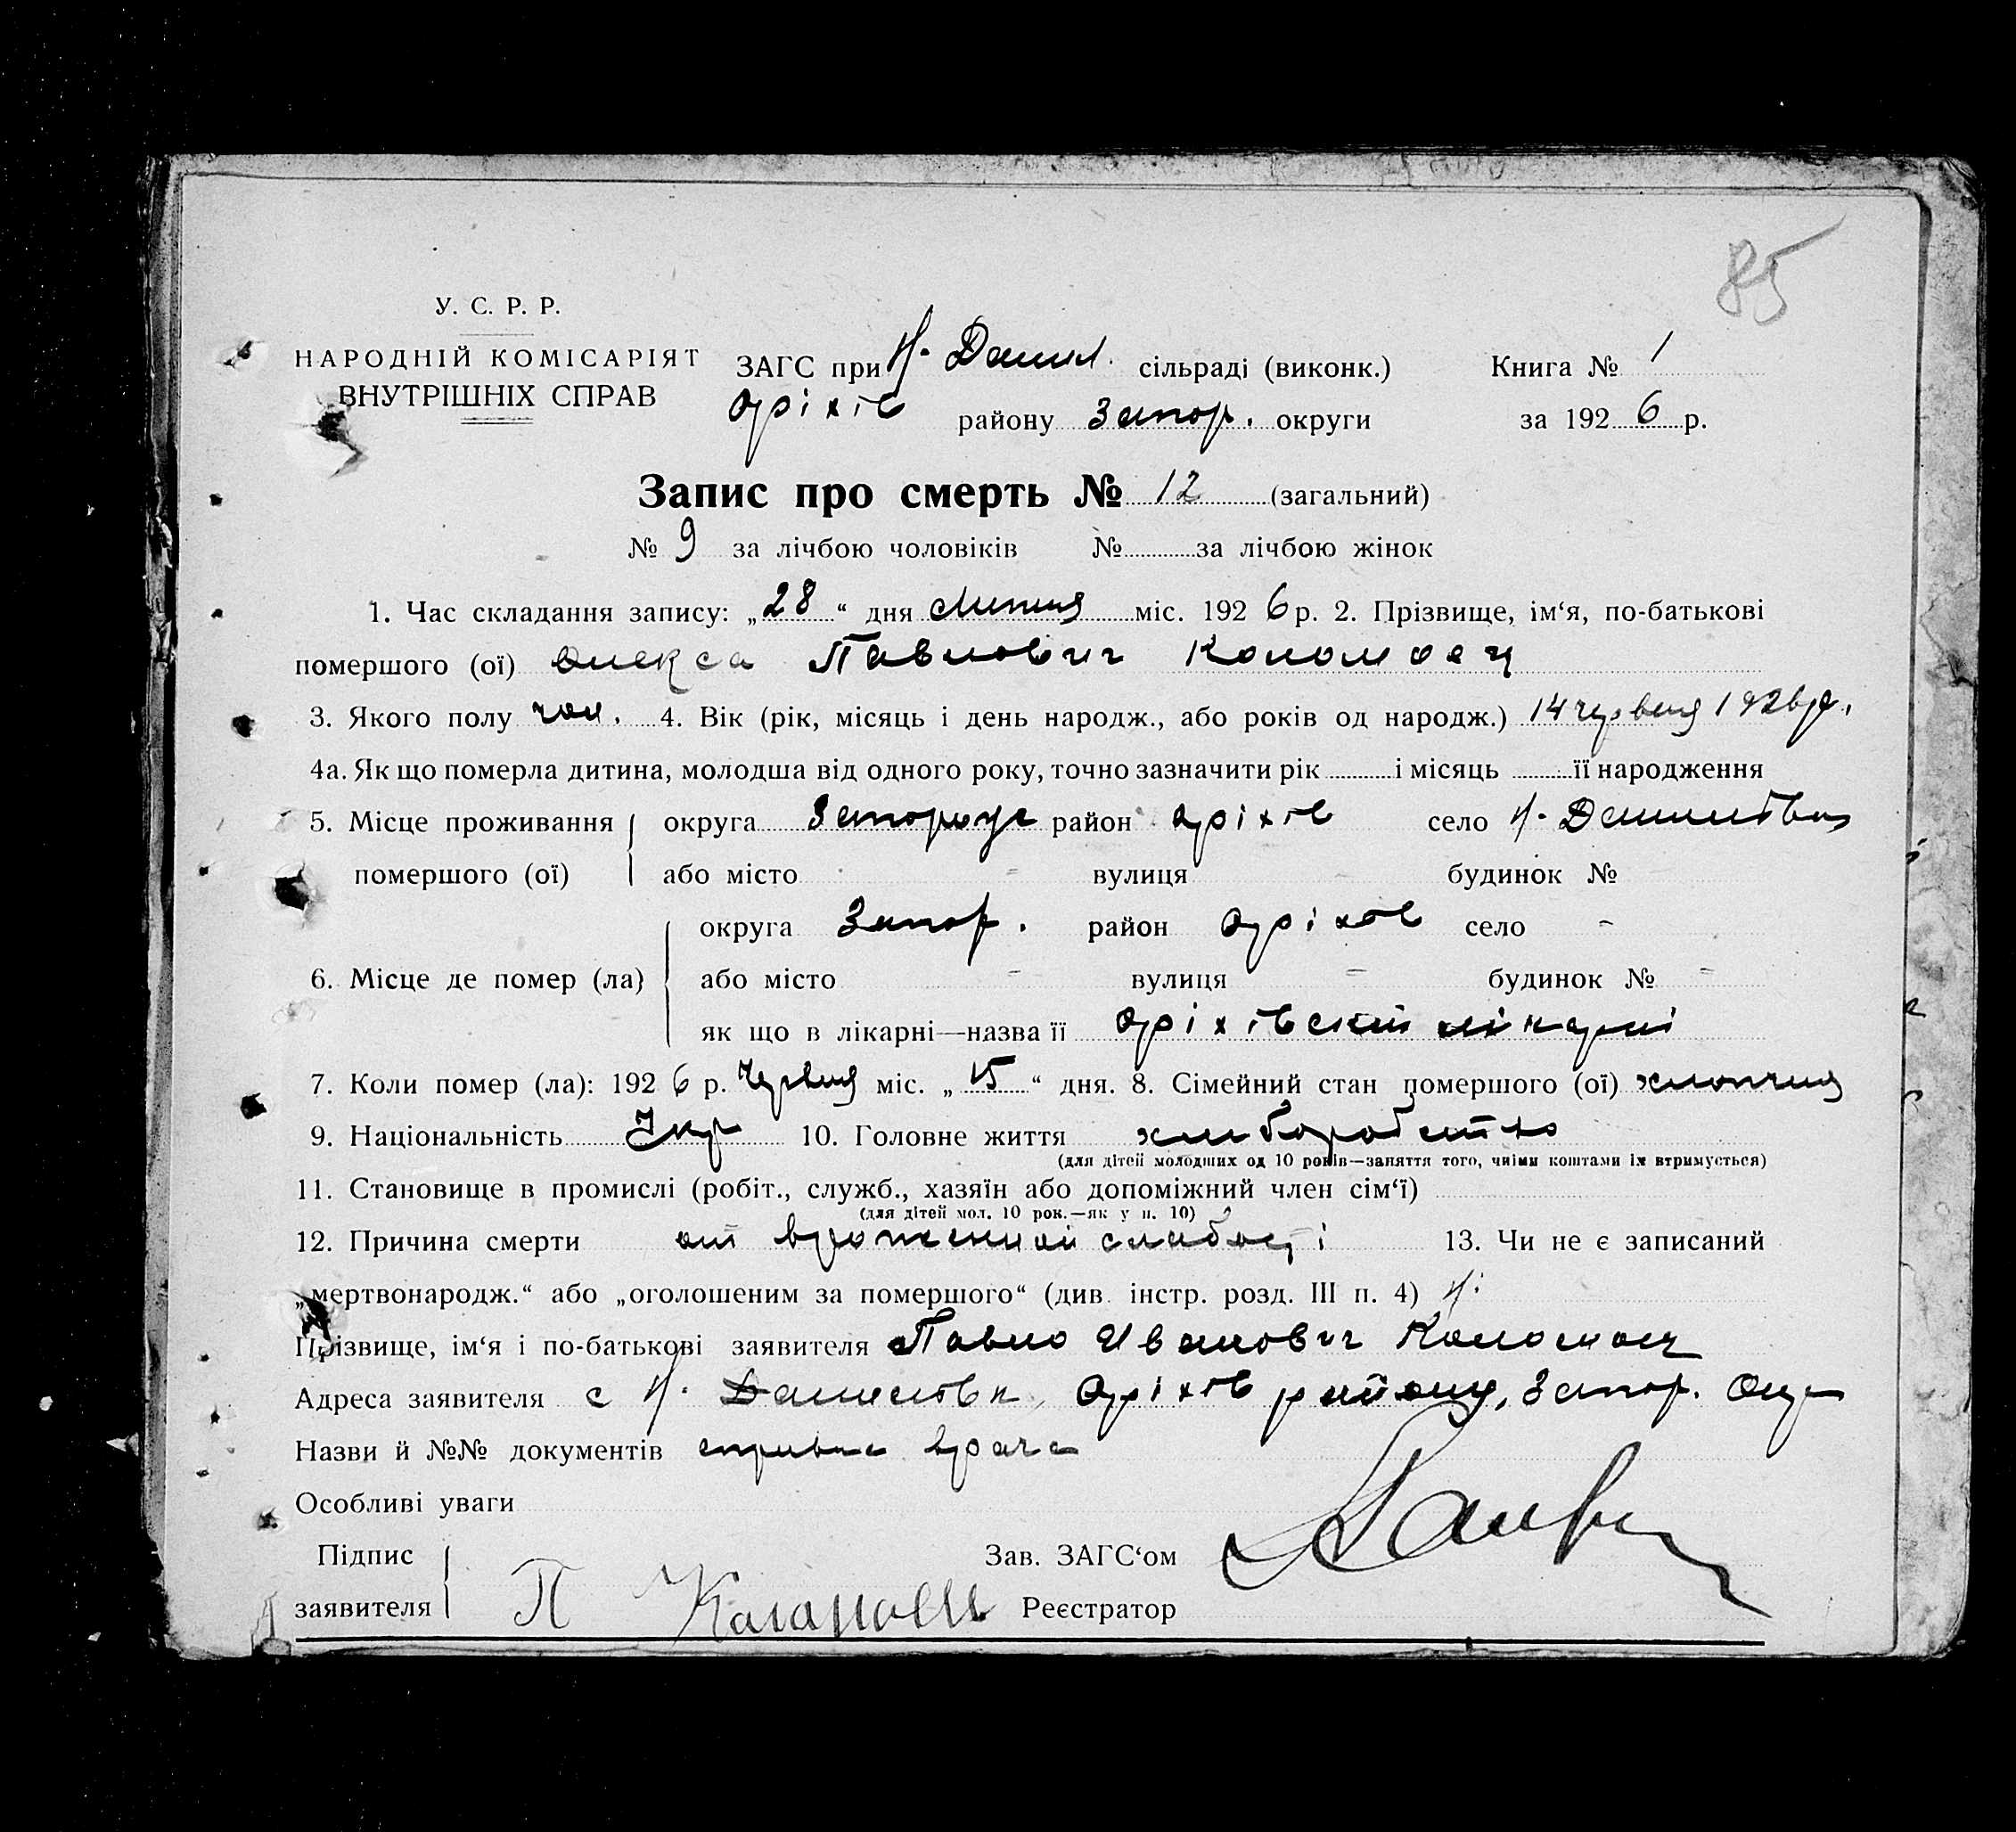 85
У. С. Р. Р.
НАРОДНІЙ КОМІСАРІЯТ
ВНУТРІШНІХ СПРАВ
ЗАГС при Н-Данил. сільраді (виконк.) Книга № 1
Оріхів району Запор. округи за 1926 р.
Запис про смерть № 12 (загальний)
№ 9 за лічбою чоловіків № за лічбою жінок
1. Час складання запису: „28“ дня Липня міс. 1926 р. 2. Прізвище, ім‘я, по-батькові
помершого (ої) Олекса Павлович Коломоец
3. Якого полу чол. 4. Вік (рік, місяць і день народж., або років од народж.) 14 червня 1926 р.
4а. Як що померла дитина, молодша від одного року, точно зазначити рік і місяць її народження
5. Місце проживання округа район Оріхів село Н-Данилівка
помершого (ої) або місто - вулиця - будинок №
округа Запор. район Оріхів село -
6. Місце де помер (ла) або місто - вулиця - будинок № -
як що в лікарні—назва її Оріхівский лікарні
7. Коли помер (ла): 1926 р. Червня міс. „15“ дня. 8. Сімейний стан помершого (ої) хлопчик
9. Національність Укр 10. Головне життя хліборобство
(для дітей молодших од 10 років—заняття того, чиїми коштами їх втримується)
11. Становище в промислі (робіт., служб., хазяїн або допоміжний член сім‘ї)
(для дітей мол. 10 рок.—як у п. 10)
12. Причина смерти от врожденной слабості 13. Чи не є записаний
„мертвонародж.“ або „оголошеним за помершого“ (див. інстр. розд. III п. 4) Н:
Прізвище, ім‘я і по-батькові заявителя Павло Иванович Коломоец
Адреса заявителя с Н. Данилівк Оріхів району, Запор. Окр
Назви й №№ документів справка врача
Особливі уваги
Підпис Зав. ЗАГС‘ом
заявителя П Реєстратор